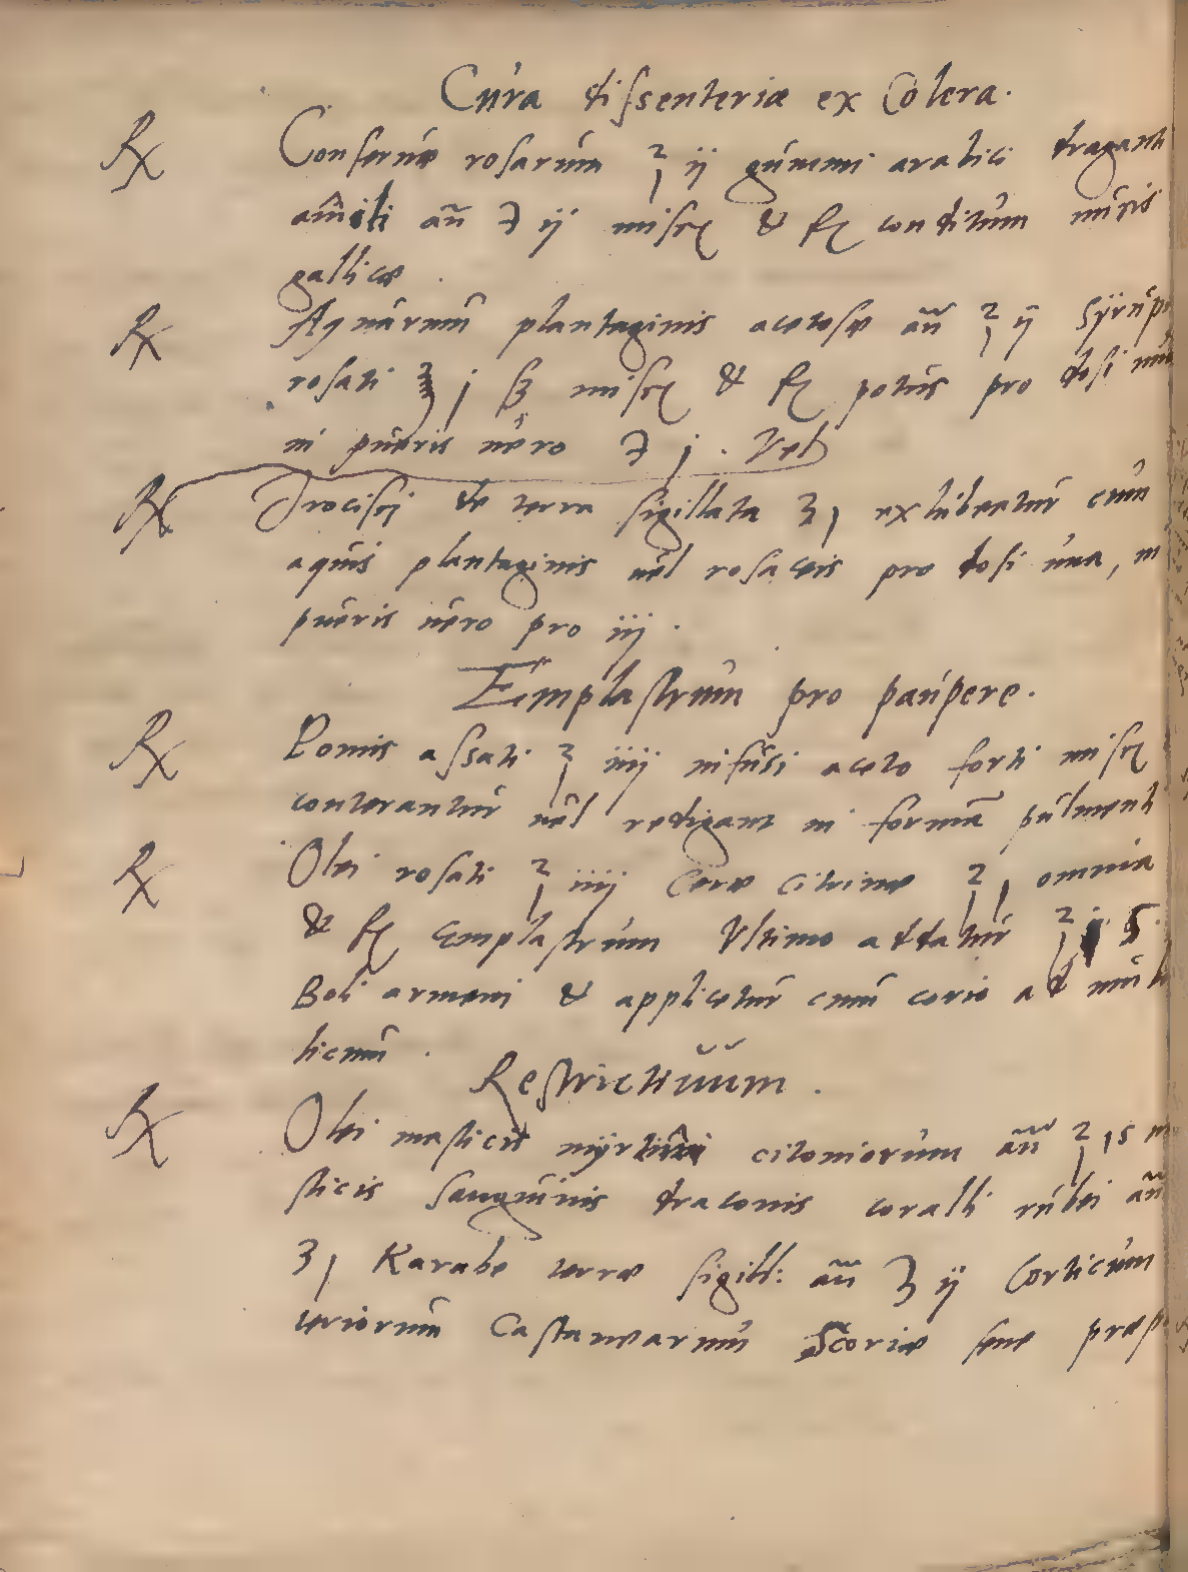 Cura dissenteriæ ex Colera.
℞ Conseruæ rosarum ℥ ij gummi arabici draganti
amili añ ʒ ij miscę & fę conditum muris
gallicæ.
℞ Aquarum plantaginis acetosæ añ ℥ ij syrupi
rosati ℥ j ß miscę & fę potus pro dosi
in pueris uero j. Vel
℞ Trocisci de terra sigillata ʒ j exhibeatur cum
aquis plantaginis uel rosaceis pro dosi una, in
pueris uero pro iij.
Emplastrum pro paupere.
℞ Pomis assati ℥ iiij infusi aceto forti miscę
conterantur uel redigant in formā pulmenti
℞ Olei rosati ℥ iiij Ceræ Citrinæ ℥ j omnia
& fę Emplastrum Vltimo addatur ℥
Boli armeni & applicetur cum corio ad
licum.
Restrictiuum.
℞ Olei masticis citoniorum añ ℥ j s
sticis sanguinis draconis coralli rubei añ
ʒ j Karabe terræ sigill: añ ʒ ij Corticum
teriorum Castanearum Scoriæ